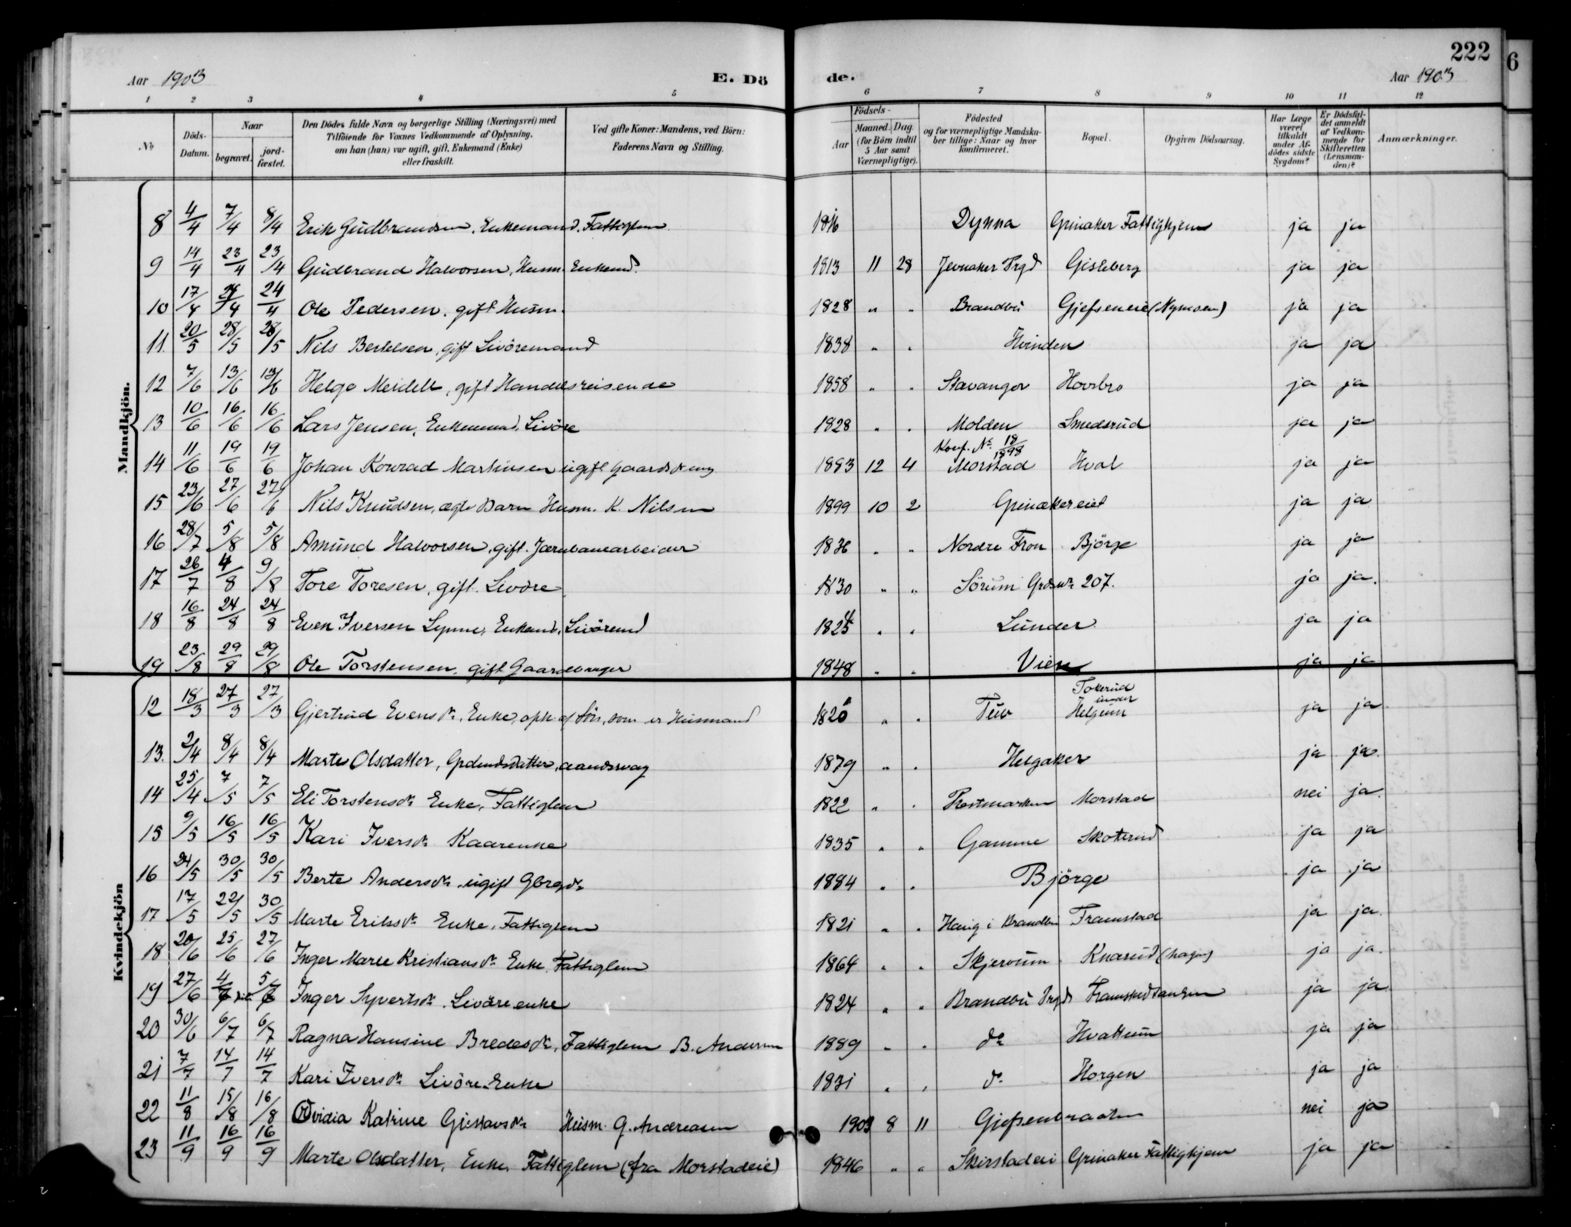 222
6
Aar 1903 E. Dö de. Aar 1903
1 2 3 4 5 6 7 8 9 10 11 12
No
Döds-Datum.
Naar
begravet.
jord-fæstet.
Den Dödes fulde Navn og borgerlige Stilling (Næringsvei) med
Tilföiende for Voxnes Vedkommende af Oplysning,
om han (hun) var ugift, gift, Enkemand (Enke)
eller fraskilt.
Ved gifte Koner: Mandens, ved Börn:
Faderens Navn og Stilling.
Födsels-
Aar
Maaned. Dag
(for Börn indtil
5 Aar samt
Værnepligtige).
Födested
og for værnepligtige Mandska-
ber tillige: Naar og hvor
konfirmeret.
Bopæl.
Opgiven Dödsaarsag.
Har Læge
været
tilkaldt
under Af-
dödes sidste
Sygdom?
Er Dödsfal-
det anmeldt
af Vedkom-
mende for
Skifteretten
(Lensman-
den)?
Anmærkninger.
Mandkjön.
8 4/4 7/4 8/4 Erik Gudbrandsen, Enkemand, Fattiglem 1816 Dynna Grinaker Fattighjem ja ja
9 14/4 23/4 23/4 Gudbrand Halvorsen, Husm. Enkemd. 1813 11 28 Jevnaker Prgd Gisleberg ja ja
10 17/4 24/4 24/4 Ole Pedersen, gift Husm. 1828 " " Brandbu Gjefseneie (Nymoen) ja ja
11 20/5 28/5 28/5 Nils Bertelsen, gift Livöremand 1838 " " Hvinden ja ja
12 7/6 13/6 13/6 Helge Meidell, gift Handelsreisende 1858 " " Stavanger Hovsbro ja ja
13 10/6 16/6 16/6 Lars Jensen, Enkemand, Livöre 1828 " " Molden Smedsrud ja ja
Konf. No 18/1898
14 11/6 19/6 19/6 Johan Konrad Martinsen ugift Gaardsdreng 1883 12 4 Morstad Hval ja ja
15 23/6 27/6 27/6 Nils Knudsen, ægte Barn Husm. K. Nilsen 1899 10 2 Grinakereiet ja ja
16 28/7 5/8 5/8 Amund Halvorsen, gift. Jernbanearbeider 1836 " " Nordre Fron Björge ja ja
17 26/7 4/8 9/8 Tore Toresen, gift. Livöre 1830 " " Sörum Grdsnr 207. ja ja.
18 16/8 24/8 24/8 Even Iversen Lynne, Enkemd, Livöremd 1824 " " Lunder ja ja
19 23/8 29/8 29/8 Ole Torstensen, gift Gaardbruger 1848 " " Vien ja ja
Kvindekjön
Tokerud
under
12 18/3 27/3 27/3 Gjertrud Evensdr. Enke, oph. af Sön, som er Husmand 1820 " " Tuv Helgum ja ja
13. 2/4 8/4 8/4 Marte Olsdatter, Grdmdsdatter, aandssvag 1879 " " Helgaker ja ja.
14 25/4 7/5 7/5 Eli Torstensdr. Enke, Fattiglem 1822 " " Morstad nei ja.
15 9/5 16/5 16/5 Kari Iversdr. Kaarenke 1835 " " Gamme Skoterud ja ja
16 24/5 30/5 30/5 Berte Andersdr. ugift Gbrgdr. 1884 " " Björge ja ja
17 17/5 22/5 30/5 Marte Eriksdr. Enke, Fattiglem 1821 " " Haug i Brandbu Framstad ja ja.
18 20/6 25/6 27/6 Inger Marie Kristiansdr. Enke Fattiglem 1864 " " Skjervum Knarud (hagen) ja ja.
19 27/6 4/7 5/7 Inger Syvertsdr. Livöreenke 1824 " " Brandbu Prgd. Framstadtangen ja ja.
20 30/6 6/7 6/7 Ragna Hansine Bredesdr. Fattiglem B. Andersen 1889 " " do Hvattum ja ja
21 7/7 14/7 14/7 Kari Iversdr. Livöre Enke 1831 " " do Horgen ja ja
22 11/8 15/8 16/8 Ovidia Katrine Gustavsdr. Husm. G. Andreasen 1903 8 11 Gjefsenbraaten nei ja
23 11/9 16/9 16/9 Marte Olsdatter, Enke, Fattiglem (fra Morstadeie) 1846 " " Skirstadeie Grinaker Fattighjem ja ja